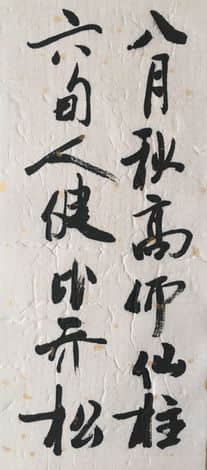 八月秋高仰仙桂
六旬人健比乔松